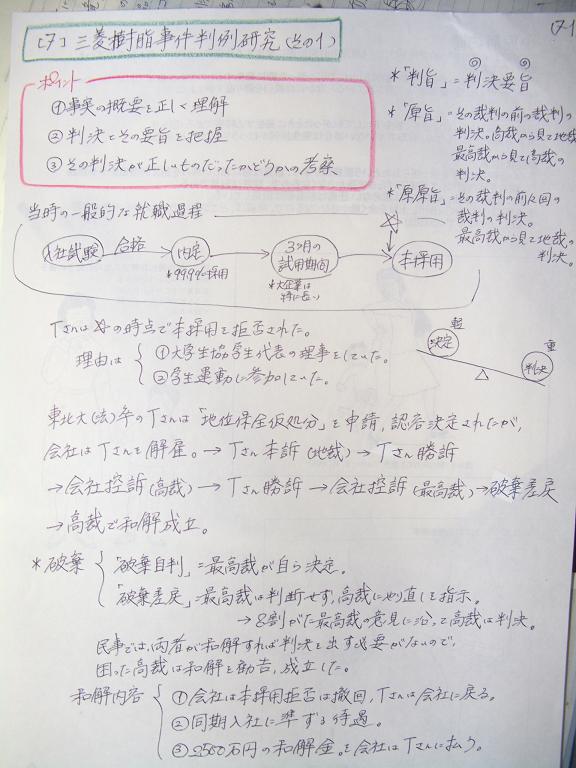 [7] 三菱樹脂事件判例研究(その1)
(7-1
ポイント
①事実の概要を正しく理解
②判決とその要旨を把握
③その判決が正しいものだったかどうかの考察
*「判旨」=判決要旨
*「原旨」=その裁判の前の裁判の
判決。高裁から見て地裁
最高裁から見て高裁の
判決。
*「原原旨」=その裁判の前々回の
裁判の判決。
最高裁から見て地裁の
判決。
当時の一般的な就職過程
入社試験 合格 内定 3ヶ月の試用期間 本採用
*99.9%採用
*大企業は
特に長い
Tさんは☆の時点で本採用を拒否された。
理由は ①大学生協学生代表の理事をしていた。
②学生運動に参加していた。
軽 決定
重 判決
東北大(法)卒のTさんは「地位保全仮処分」を申請,認容決定されたが,
会社はTさんを解雇。→Tさん本訴(地裁)→Tさん勝訴
→会社控訴(高裁)→Tさん勝訴→会社控訴(最高裁)→破棄差戻
→高裁で和解成立。
*破棄 「破棄自判」=最高裁が自ら決定。
「破棄差戻」=最高裁は判断せず,高裁にやり直しを指示。
→8割がた最高裁の意見に沿って高裁は判決。
民事では,両者が和解すれば判決を出す必要がないので,
困った高裁は和解を勧告,成立した。
和解内容 ①会社は本採用拒否は撤回,Tさんは会社に戻る。
②同期入社に準ずる待遇。
③2500万円の和解金を会社はTさんに払う。